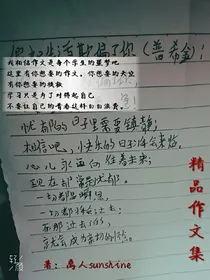 假如生活欺骗了你(普希金)
我相信作文是每个学生的噩梦吧
这里有你想要的作文，你想要的天空
有你想要的模板
学习只是为了对得起自己
不要让自己的青春这样白白浪费。
忧郁的日子里需要镇静；
相信吧，快乐的日子将会来临。
心儿永远向往着未来；
现在却常是忧郁。
一切都是瞬息，
一切都将会过去；
而那过去了的，
就会成为亲切的怀恋。
精品作文集
著：离人sunshine
轻颜